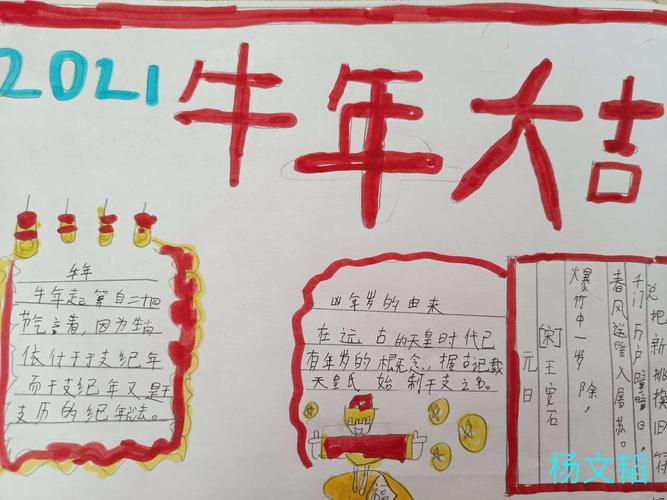 2021 牛年大吉
牛年
牛年起算自二十四
节气立春,因为生肖
依付于干支纪年
而干支纪年又是干
支历的纪年法。
年岁的由来
在远古的天皇时代已
有年岁的概念,据记载
天皇氏始制干支之名。
福
元日
[宋]王安石
爆竹中一岁除,
春风送暖入屠苏。
千门万户曈曈日,
总把新桃换旧符
杨文韬